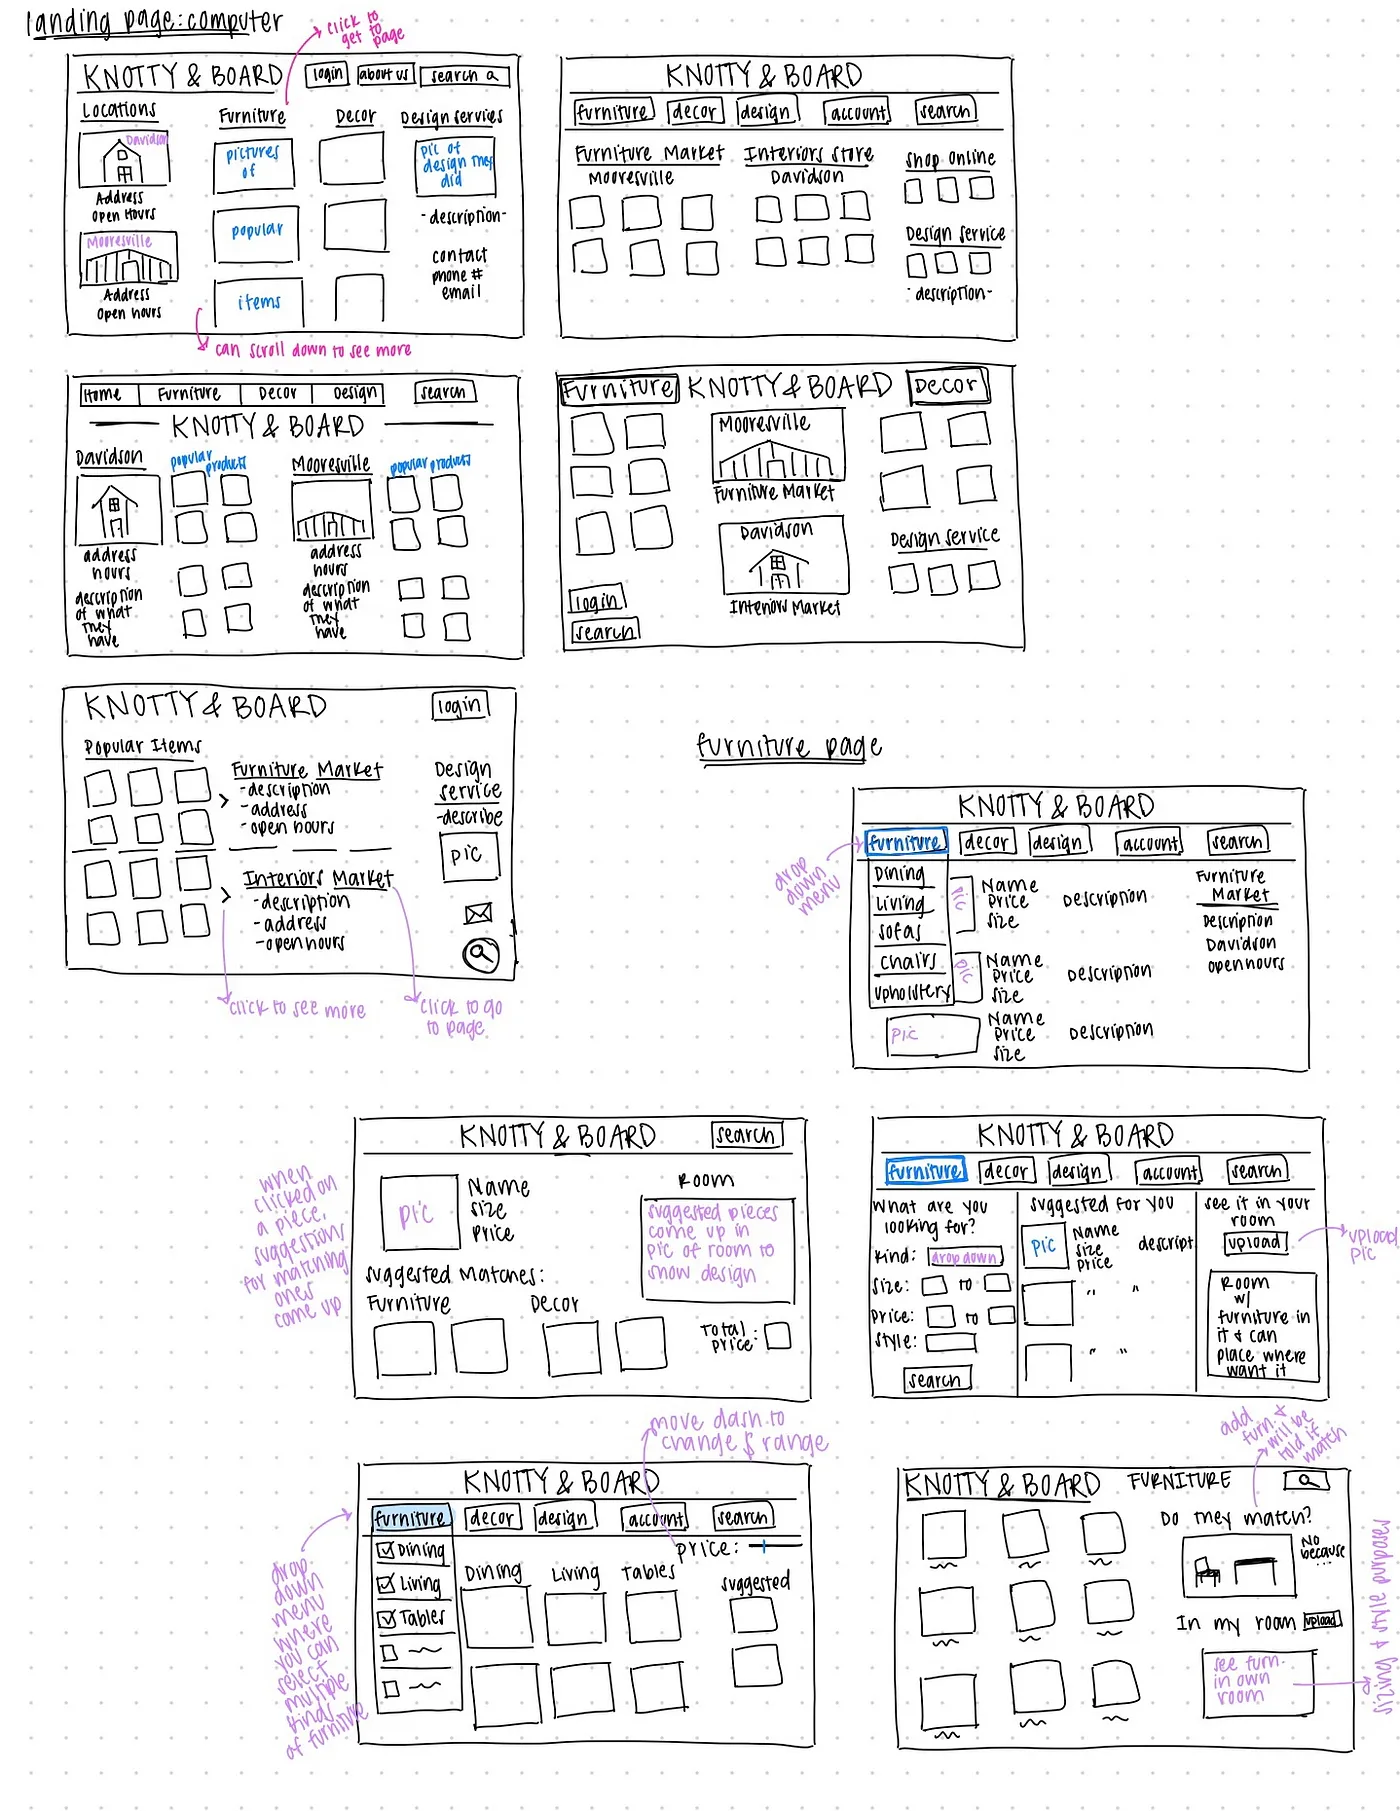 landing page: computer
click to
get to
page
KNOTTY & BOARD
login
about us
search
Locations
Furniture
Decor
Design services
Davidson
Address
Open Hours
Mooresville
Address
Open hours
pictures
of
popular
items
pic of
design they
did
- description -
contact
phone #
email
can scroll down to see more
KNOTTY & BOARD
furniture
decor
design
account
search
Furniture Market
Mooresville
Interiors Store
Davidson
Shop online
Design service
- description -
Home
Furniture
Decor
Design
search
KNOTTY & BOARD
Davidson
popular
products
address
hours
description
of what
they
have
Mooresville
popular products
address
hours
description
of what
they
have
Furniture
KNOTTY & BOARD
Decor
Mooresville
Furniture Market
Davidson
Interiors Market
Design service
login
search
KNOTTY & BOARD
login
Popular Items
Furniture Market
- description
- address
- open hours
Interiors Market
- description
- address
- open hours
Design
service
- describe
pic
click to see more
click to go
to page
furniture page
KNOTTY & BOARD
furniture
decor
design
account
search
drop
down
menu
Dining
Living
Sofas
Chairs
upholstery
pic
Name
Price
Size
Description
pic
Name
Price
Size
Description
pic
Name
Price
Size
Description
Furniture
Market
Description
Davidson
open hours
KNOTTY & BOARD
search
when
clicked on
a piece,
suggestions
for matching
ones
come up
pic
Name
size
price
Room
suggested pieces
come up in
pic of room to
show design
Suggested Matches:
Furniture
Decor
Total
price:
KNOTTY & BOARD
furniture
decor
design
account
search
What are you
looking for?
Kind: drop down
size: to
price: to
style:
search
suggested for you
pic
Name
size
price
descript
" "
" "
see it in your
room
upload
upload
pic
Room
w/
furniture in
it & can
place where
want it
move dash to
change $ range
KNOTTY & BOARD
furniture
decor
design
account
search
drop
down
menu
where
you can
select
multiple
kinds
of furniture
Dining
Living
Tables
price:
Dining
Living
Tables
suggested
add
furn. &
will be
told if
match
KNOTTY & BOARD
FURNITURE
Do they match?
No
because
...
In my room
upload
see furn.
in own
room
sizing & style purposes